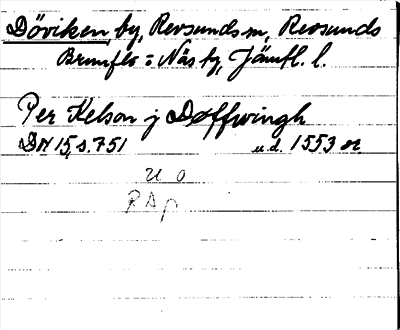 Döviken by, Revsunds sn, Revsunds
Brunflo = Näs tg, Jämtl. l.
Per Kelson j Døffwingh
DN 15, s. 751 u.d. 1553 or.
u o
R D p